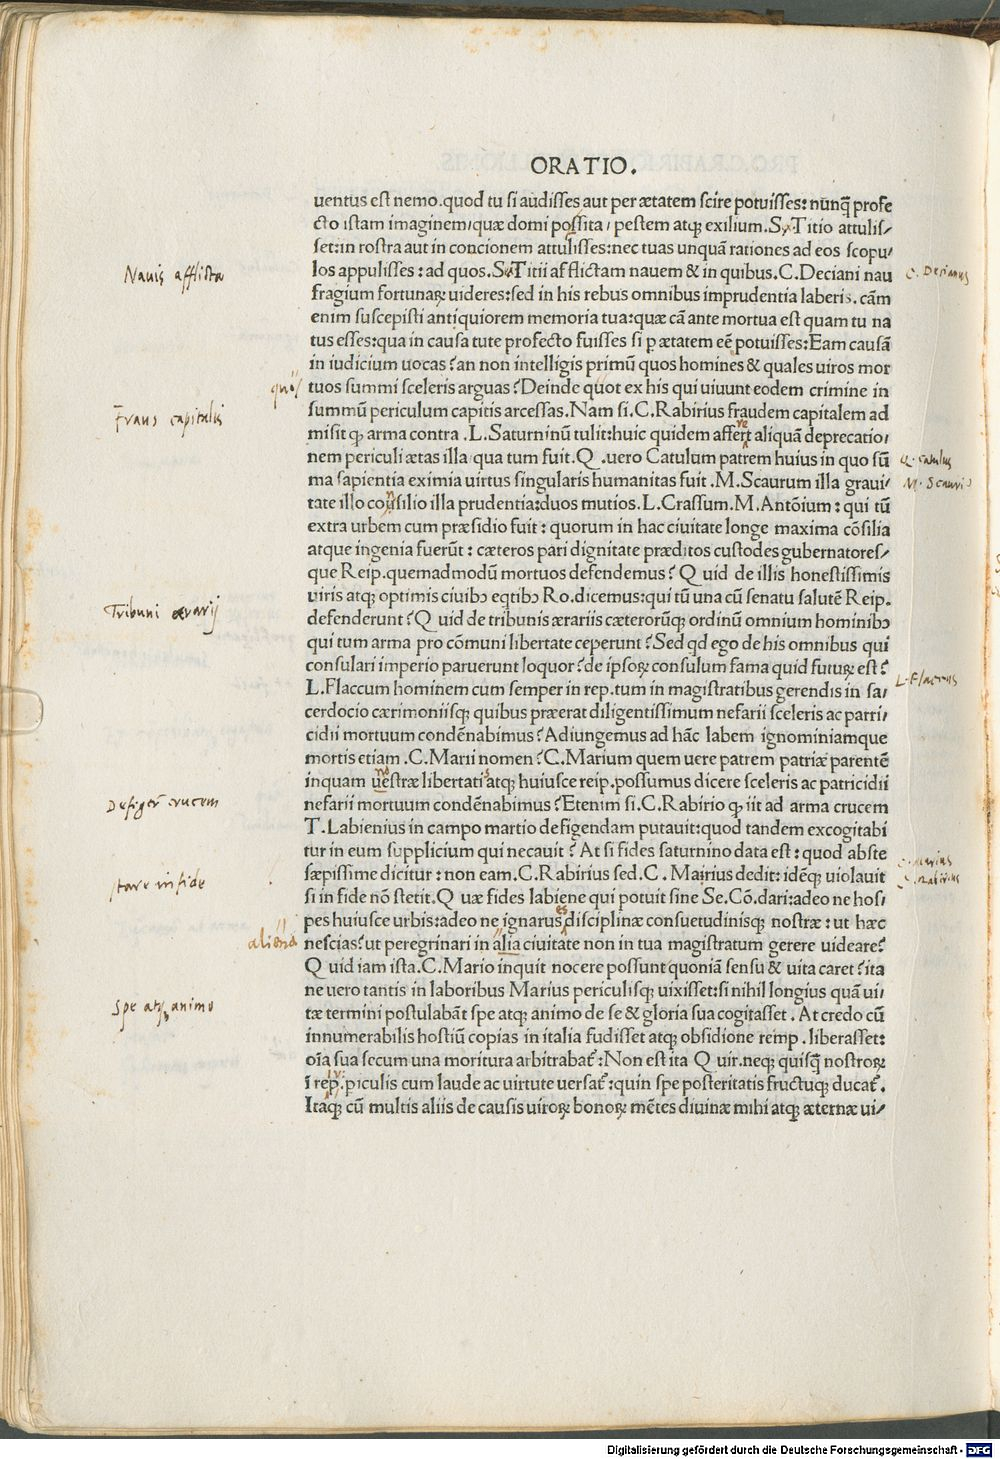 ORATIO.
uentus est nemo.quod tu si audisses aut per ætatem scire potuisses: nunq̃ profe
cto istam imaginem/quæ domi possita/ pestem atqꝫ exilium.S.Titio attulis/
set:in rostra aut in concionem attulisses:nec tuas unquã rationes ad eos scopu/
los appulisses: ad quos.S.Titii afflictam nauem & in quibus.C.Deciani nau
fragium fortunaꝝ uideres:sed in his rebus omnibus imprudentia laberis. cãm
enim suscepisti antiquiorem memoria tua:quæ cã ante mortua est quam tu na
tus esses:qua in causa tute profecto fuisses si ꝑ ætatem eẽ potuisses:Eam causã
in iudicium uocas?an non intelligis primũ quos homines & quales uiros mor
tuos summi sceleris arguas?Deinde quot ex his qui uiuunt eodem crimine in
summũ periculum capitis arcessas.Nam si.C.Rabirius fraudem capitalem ad
misit ꝙ arma contra .L.Saturninũ tulit:huic quidem affert aliquã deprecatio/
nem periculi ætas illa qua tum fuit.Q .uero Catulum patrem huius in quo sũ
ma sapientia eximia uirtus singularis humanitas fuit .M.Scaurum illa graui/
tate illo consilio illa prudentia:duos mutios.L.Crassum.M.Antõium: qui tũ
extra urbem cum præsidio fuit: quorum in hac ciuitate longe maxima cõsilia
atque ingenia fuerũt: cæteros pari dignitate præditos custodes gubernatores/
que Reip.quemadmodũ mortuos defendemus? Q uid de illis honestissimis
uiris atqꝫ optimis ciuibꝰ eqtibꝰ Ro.dicemus:qui tũ una cũ senatu salutẽ Reip.
defenderunt?Q uid de tribunis ærariis cæterorũqꝫ ordinũ omnium hominibꝰ
qui tum arma pro cõmuni libertate ceperunt?Sed qd ego de his omnibus qui
consulari imperio paruerunt loquor?de ipsoꝝ consulum fama quid futuꝝ est?
L.Flaccum hominem cum semper in rep.tum in magistratibus gerendis in sa/
cerdocio cærimoniisqꝫ quibus præerat diligentissimum nefarii sceleris ac parri/
cidii mortuum condẽnabimus?Adiungemus ad hãc labem ignominiamque
mortis etiam .C.Marii nomen?C.Marium quem uere patrem patriæ parentẽ
inquam uestræ libertati atqꝫ huiusce reip.possumus dicere sceleris ac patricidii
nefarii mortuum condẽnabimus?Etenim si.C.Rabirio ꝙ iit ad arma crucem
T.Labienius in campo martio defigendam putauit:quod tandem excogitabi
tur in eum supplicium qui necauit? At si fides saturnino data est: quod abste
sæpissime dicitur: non eam.C.Rabirius sed.C. Mairius dedit: idẽqꝫ uiolauit
si in fide nõ stetit.Q uæ fides labiene qui potuit sine Se.Cõ.dari:adeo ne hos/
pes huiusce urbis:adeo ne ignarus disciplinæ consuetudinisqꝫ nostræ: ut hæc
nescias?ut peregrinari in alia ciuitate non in tua magistratum gerere uideare?
Q uid iam ista.C.Mario inquit nocere possunt quoniã sensu & uita caret?ita
ne uero tantis in laboribus Marius periculisqꝫ uixisset:si nihil longius quã ui/
tæ termini postulabãt spe atqꝫ animo de se & gloria sua cogitasset. At credo cũ
innumerabilis hostiũ copias in italia fudisset atqꝫ obsidione remp.liberasset:
oĩa sua secum una moritura arbitrabat̃:Non est ita Q uir.neqꝫ quisq̃ nostroꝝ
ĩ rep.piculis cum laude ac uirtute uersat̃:quin spe posteritatis fructuqꝫ ducat̃.
Itaqꝫ cũ multis aliis de causis uiroꝝ bonoꝝ mẽtes diuinæ mihi atqꝫ æternæ ui/
Nauis afflicta
quos
Fraus capitalis
Tribuni ærarij
Defiger̃ crucem
stare in fide
aliena
Spe atqꝫ animo
C. Decianus
Q. Catulus
M. Scaurus
L. Flaccus
C. Marius
C. Rabirius
Digitalisierung gefördert durch die Deutsche Forschungsgemeinschaft - DFG